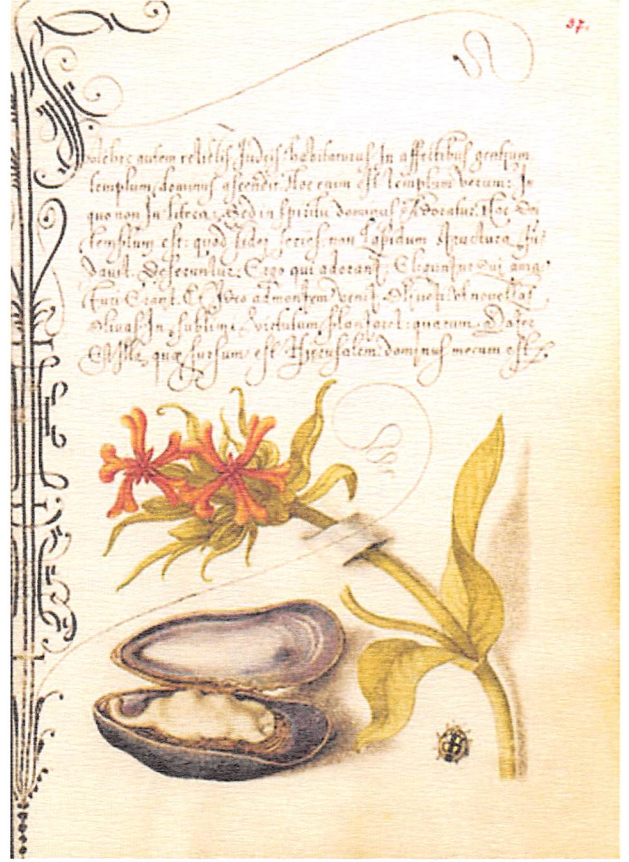 37.
autem relictis Judeis habitaturus In affectibus gentium
templum, dominus ascendit. Hoc enim est templum verum: In
quo non In litera, sed in spiritu dominus Adoratur. Hoc
templum est: quod fidei series, non lapidum structura,
dauit. Deseruntur. Ergo qui
turi Erant. Et Ideo ad montem venit vt nouellas
Oliuas In sublimi plantaret: quarum
quæ sursum est Hierusalem. dominus mecum est.